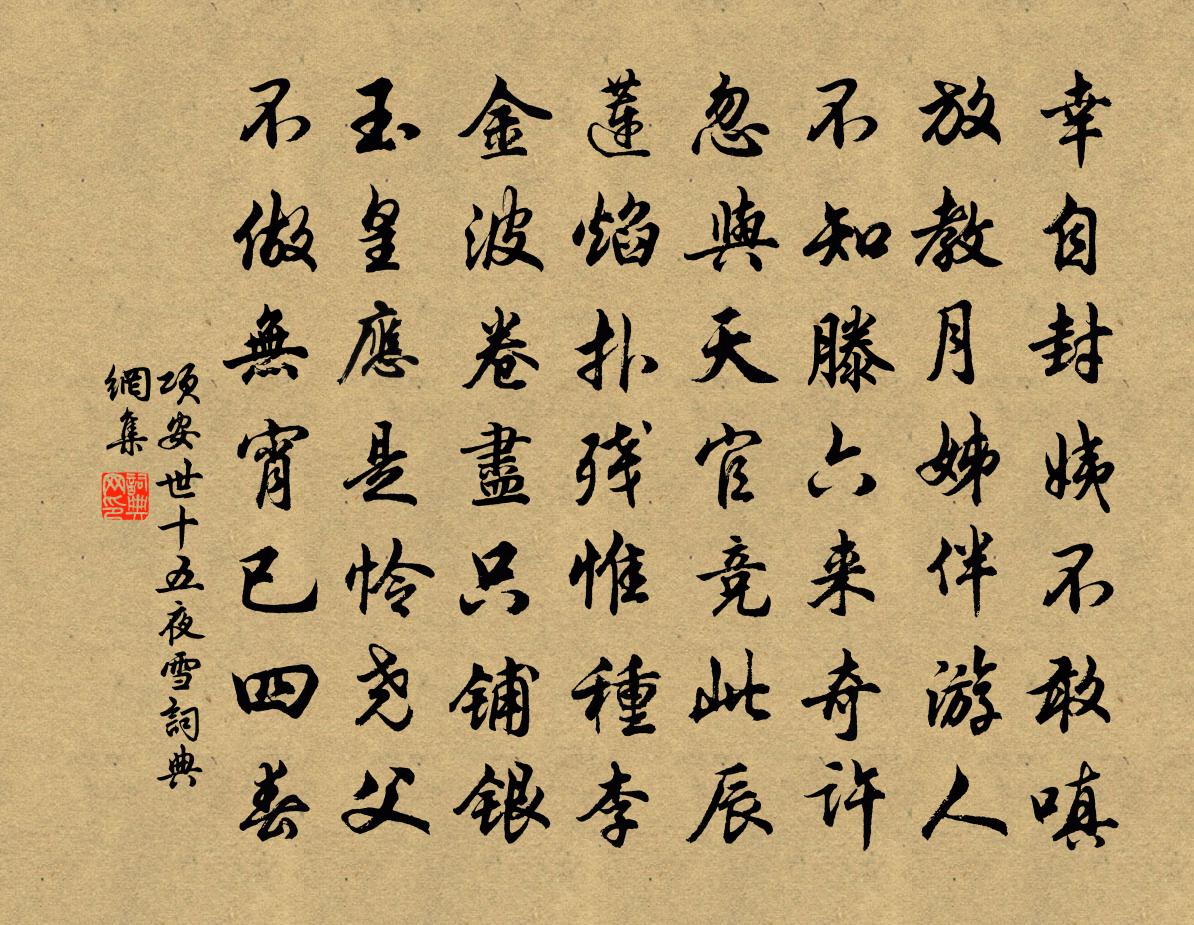 幸自封姨不敢嗔
放教月姊伴游人
不知滕六来奇許
忽與天官竞此辰
蓮焰扑残惟種李
金波卷盡只铺銀
玉皇應是怜尧父
不做無宵已四春
项安世十五夜雪詞典
網集
詞典
网印